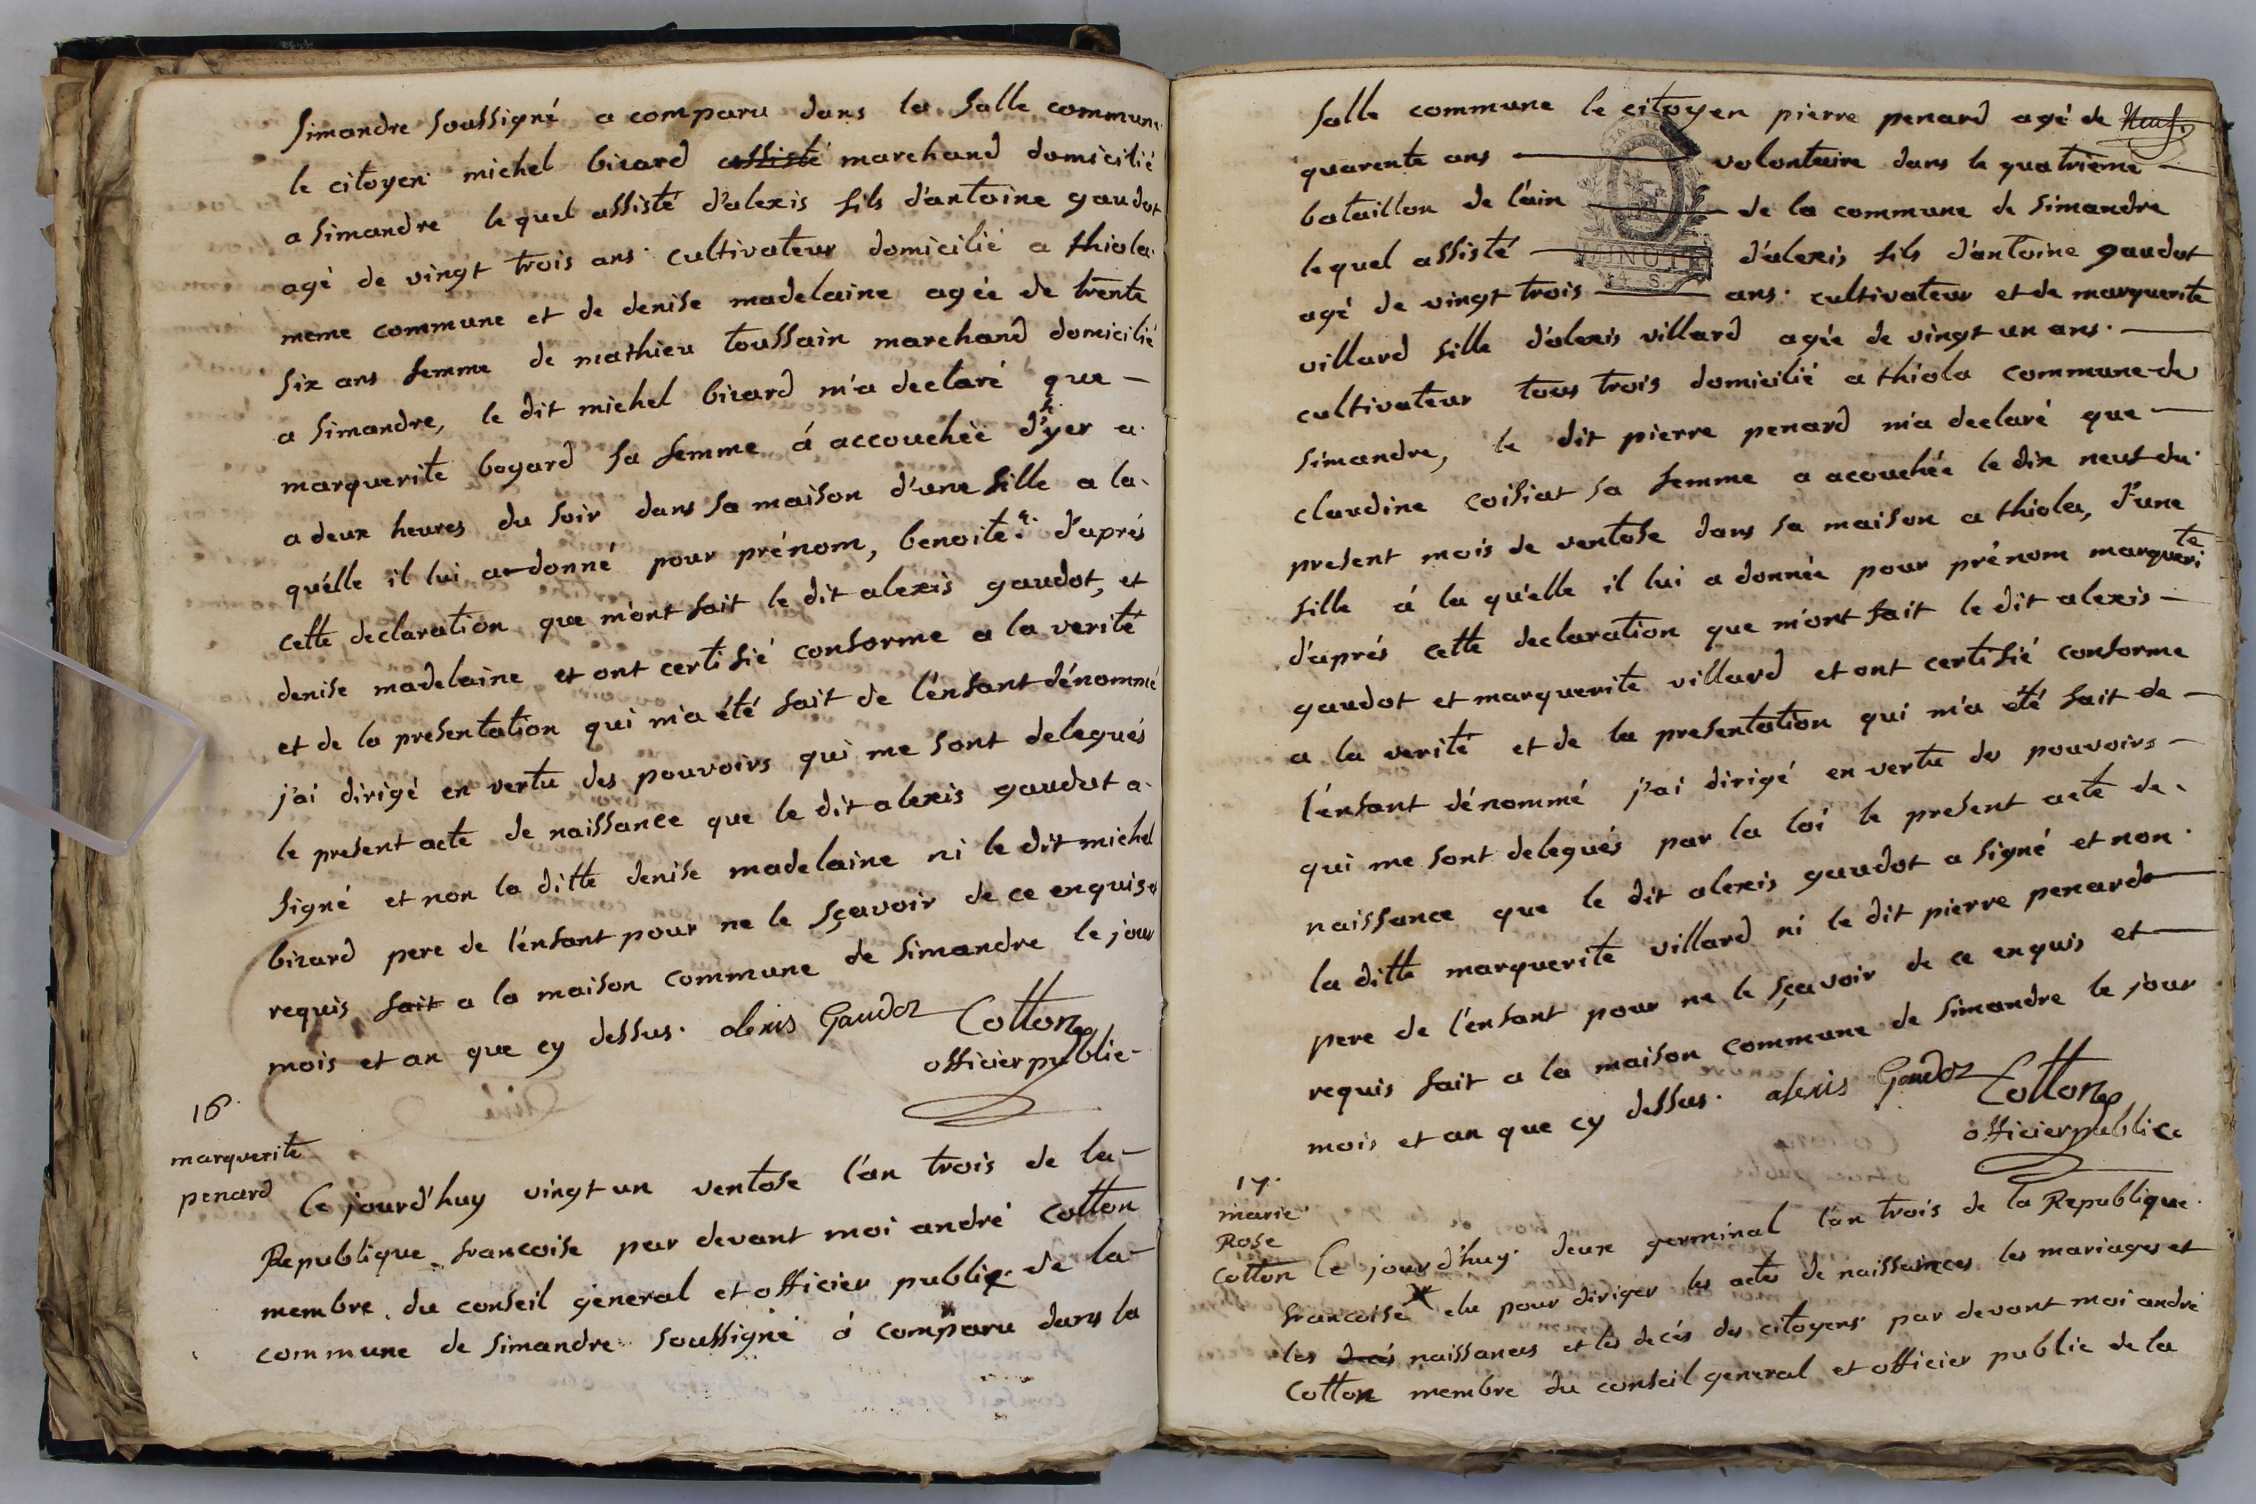 Simandre soussigné a comparu dans la salle commune
le citoyen michel bicard assisté marchand domicilié
a simandre lequel assisté d'alexis fils d'antoine gaudot
agé de vingt trois ans cultivateur domicilié a thiola
meme commune et de denise madelaine agée de trente
six ans femme de mathieu toussain marchand domicilié
a simandre, le dit michel bicard m'a declaré que
marguerite bogard sa femme á accouchée d'hyer a
a deux heures du soir dans sa maison d'une fille a la
qu'élle il lui a donné pour prénom, benoite. d'aprés
cette declaration que m'ont fait le dit alexis gaudot, et
denise madelaine et ont certifié conforme a la verité
et de la presentation qui m'a été fait de l'énfant dénommé
j'ai dirigé en vertu des pouvoirs qui me sont delegués
le present acte de naissance que le dit alexis gaudot a
signé et non la ditte denise madelaine ni le dit michel
bicard pere de l'énfant pour ne le sçavoir de ce enquis et
requis fait a la maison commune de simandre le jour
mois et an que cy dessus. alexis Gaudoz Cotton
officier public
16.
marguerite
penard
Ce jourd'huy vingt un ventose l'an trois de la
Republique francoise par devant moi andré cotton
membre du conseil géneral et officier public de la
commune de simandre soussigné á comparu dans la
salle commune le citoyen pierre penard agé de Neuf
quarente ans volontaire dans le quatrième
bataillon de l'ain de la commune de simandre
lequel assisté d'alexis fils d'antoine gaudot
MINUTE
agé de vingt trois ans cultivateur et de marguerite
villard fille d'alexis villard agée de vingt un ans
cultivateur tous trois domicilié a thiola commune de
simandre, le dit pierre penard m'a declaré que
claudine coisiat sa femme a acouchée le dix neuf du
present mois de ventose dans sa maison a thiola, d'une
fille á la qu'elle il lui a donnée pour prénom marguerite
d'aprés cette declaration que m'ont fait le dit alexis
gaudot et marguerite villard et ont certifié conforme
a la verité et de la presentation qui m'a été fait de
l'énfant dénommé j'ai dirigé en vertu des pouvoirs
qui me sont delegués par la loi le present acte de
naissance que le dit alexis gaudot a signé et non
la ditte marguerite villard ni le dit pierre penard
pere de l'énfant pour ne le sçavoir de ce enquis et
requis fait a la maison commune de simandre le jour
mois et an que cy dessus. alexis Gaudoz Cotton
officier public
17.
marie
Rose
cotton
Ce jourd'huy deux germinal l'an trois de la Republique
francoise elu pour diriger les actes de naissances les mariages et
les decés naissances et les decés des citoyens par devant moi andré
Cotton membre du conseil general et officier public de la